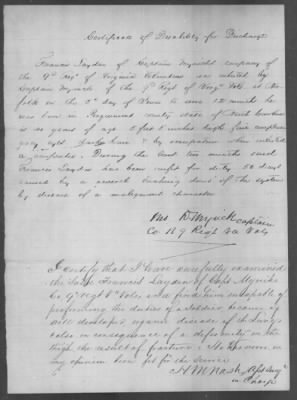 Certificate of Disability for Discharge
Francis Layden of Captain Myrick's company of
the 9th Regt of Virginia Volunteers was enlisted by
Captain Myrick of the 9th Regt of Virg Vols, at Nor
folk on the 5th day of to serve 12 months he
was born in Perquimans county state of North Carolina
is years of age 5 feet 8 inches high fair complexion
grey eyes, hair & by occupation when enlisted
a . During the last two months said
Francis Layden has been unfit for duty 60 days
caused by a breaking down of the system
by disease of a malignant character
D. Myrick Captain
Co. 9 Regt Va Vols
I certify that I have carefully examined
the said Francis Layden of Capt Myricks
Co. 9th Regt V. Vols, and find him incapable of
performing the duties of a soldier because of
well developed organic disease of the lungs
also in consequence of a deformity in the
thigh the result of fracture. He is, in
my opinion unfit for the service
H M Nash, Asst Surg
in Charge